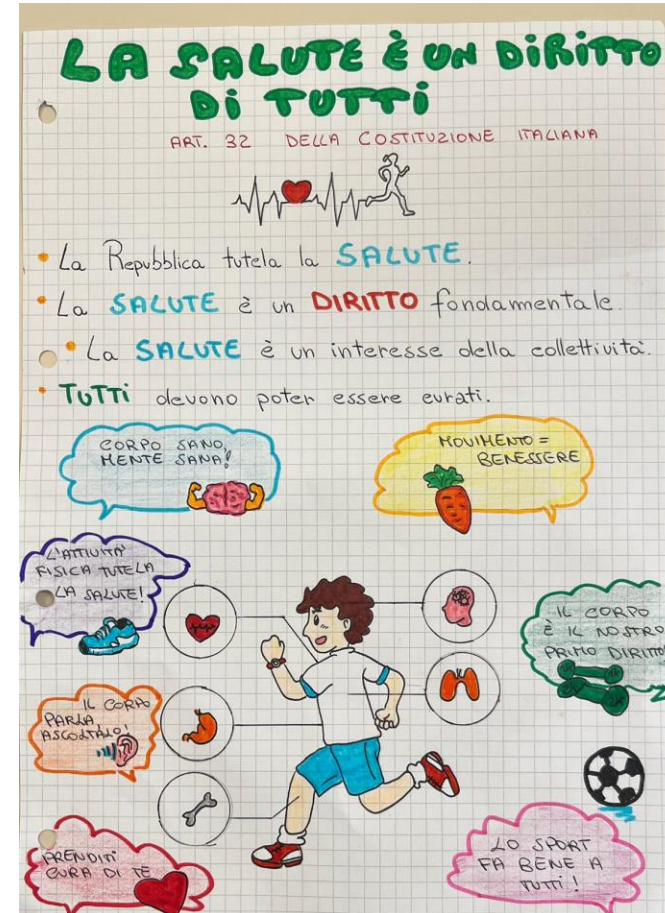 LA SALUTE È UN DIRITTO
DI TUTTI
ART. 32 DELLA COSTITUZIONE ITALIANA
• La Repubblica tutela la SALUTE.
• La SALUTE è un DIRITTO fondamentale.
• La SALUTE è un interesse della collettività.
• TUTTI devono poter essere curati.
CORPO SANO,
MENTE SANA!
MOVIMENTO =
BENESSERE
L'ATTIVITÀ
FISICA TUTELA
LA SALUTE!
IL CORPO
È IL NOSTRO
PRIMO DIRITTO
IL CORPO
PARLA
ASCOLTALO!
PRENDITI
CURA DI TE
LO SPORT
FA BENE A
TUTTI!